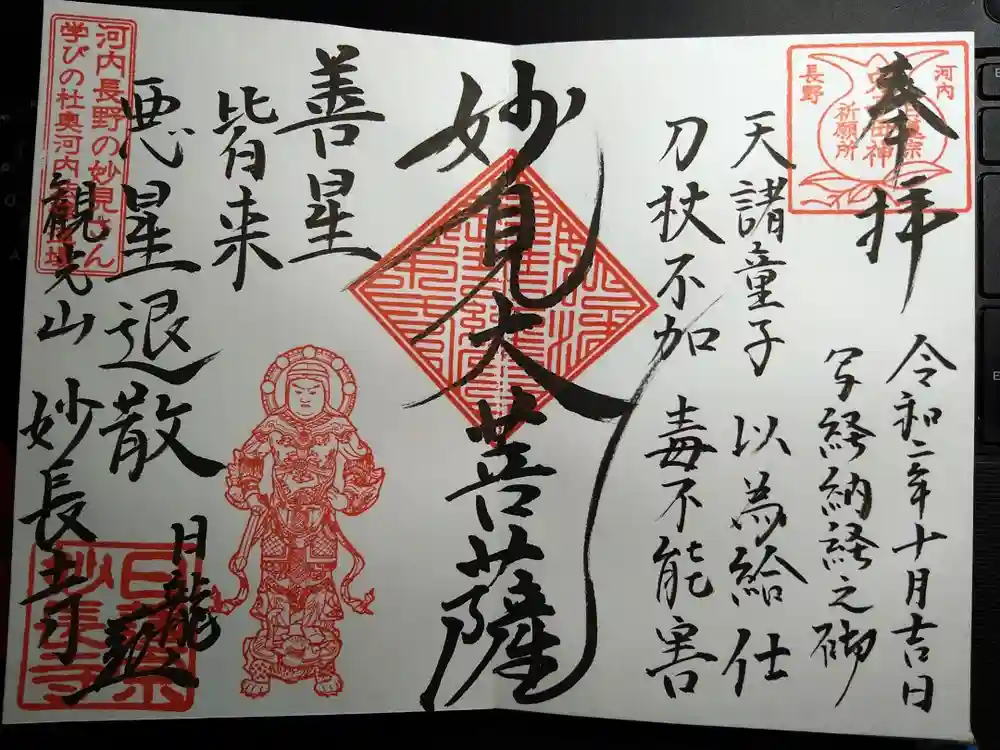 奉拝
令和二年十月吉日
写経納経之砌
天諸童子 以為給仕
刀杖不加 毒不能害
妙見大菩薩
善星
皆来
悪星退散
日龍
観光山 妙長寺
河内
長野
祈願所
河内長野の妙見さん
学びの杜奥河内
妙長寺